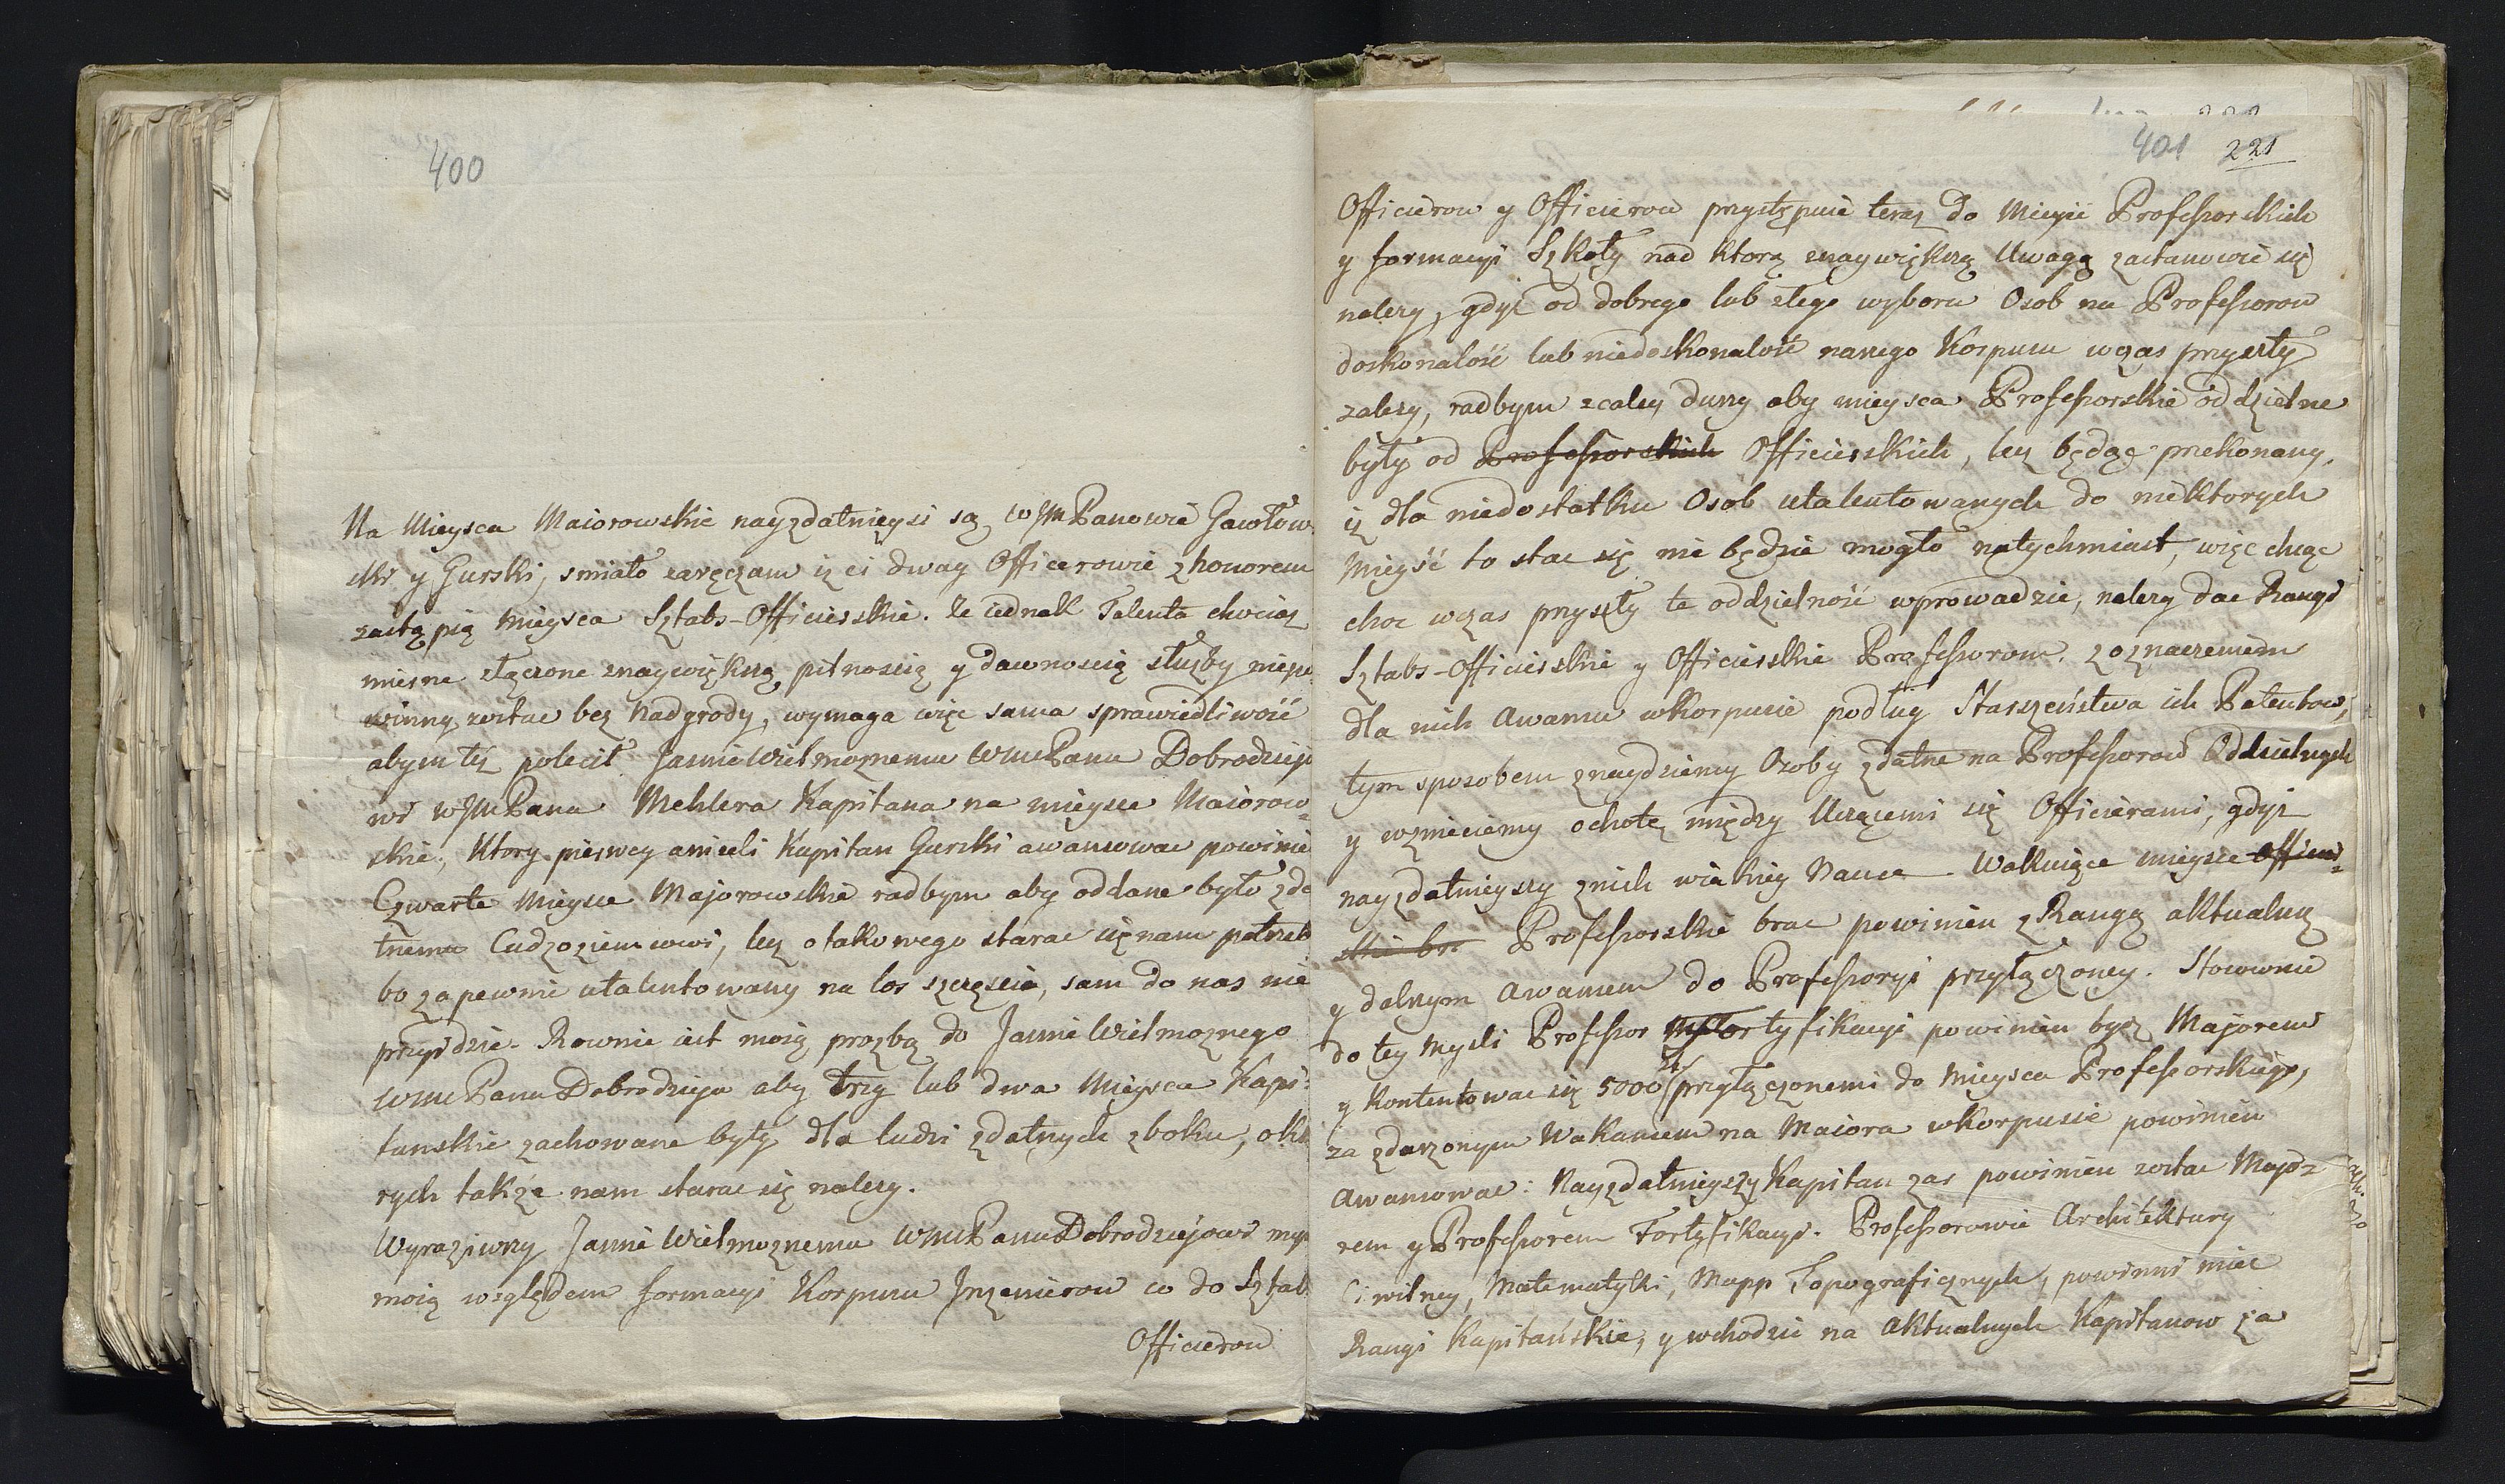 400
Na Mieysca Maiorowskie nayzdatnieysi są WJMPanowie Gawłow
ski y Gurski, smiało zaręczam iz ci dway Officerowie z honorem
zastąpią mieysca Sztabs-Officierskie. Ze iednak Talenta chociaz
mierne złączone znaywiększą pilnoscią y dawnoscią służby niepo
winny zostac bez Nadgrody, wymaga więc sama sprawiedliwość
abym też polecił JasnieWielmoznemu WmPanu Dobrodziejo
wi WJMPana Mehlera Kapitana na mieysce Maiorow=
skie, Ktory pierwey anizeli Kapitan Gurski awansowac powinie
Czwarte Mieysce Majorowskie radbym aby oddane było zda
tnemu Cudzoziemcowi, lecz o takowego starac się nam potrzeb
bo zapewnie utalentowany na los szczęscia, sam do nas nie
przyidzie. Rownie iest moią prozbą do Jasnie Wielmoznego
WmPana Dobrodzieja aby trzy lub dwa Mieysca Kapi=
tanskie zachowane były dla ludzi zdatnych z boku, o kto
rych także nam starac się nalezy.
Wyraziwszy Jasnie Wielmoznemu WmPanu Dobrodziejowi mysl
moią względem formacyi Korpusu Jnzenierow co do Sztab
Officierow
401 221
Officierow y Officierow przystępuie teraz do Mieysc Professorskich
y formacyi Szkoły nad ktorą znaywiększą Uwagą zastanowic się
nalezy, gdyż od dobrego lub złego wyboru Osob na Professorow
doskonalość lub niedoskonalość naszego Korpusu w czas przyszły
zalezy, radbym z całey duszy aby mieysca Professorskie oddzielne
były od Professorskich Officierskich, lecz będąc przekonany,
iż dla niedostatku Osób utalentowanych do niektorych
Mieysć to stac się nie będzie mogło natychmiast, więc chcąc
choc w czas przyszły te oddzielność wprowadzic, nalezy dac Rangi
Sztabs-Officierskie y Officierskie Professorom. z oznaczeniem
dla nich Awansu w Korpusie podług Starszeństwa ich Patentow,
tym sposobem znaydziemy Osoby zdatne na Professorow Oddzielnych
y wzniecięmy ochotę między Uczącemi się Officierami, gdyż
nayzdatnieyszy z nich w iakiey Nauce Wakuiące mieysce Officier=
skie br. Professorskie brac powinien z Rangą aktualną
y dalszym Awansem do Professoryi przyłączoney. Stosownie
do tey mysli Professor Fortyfikacyi powinien bydz Majorem
y kontentowac się 5000 przyłączonemi do Mieysca Professorskiego,
za zdarzonym Wakansem na Maiora w Korpusie powinien
Awansowac: Nayzdatnieyszy Kapitan zas powinien zostac Majo=
rem y Professorem Fortyfikacyi. Professorowie Architektury
Ciwilney, Matematyki, Mapp Topograficznych, powinni miec
Rangi Kapitańskie, y wchodzic na Aktualnych Kapitanow za